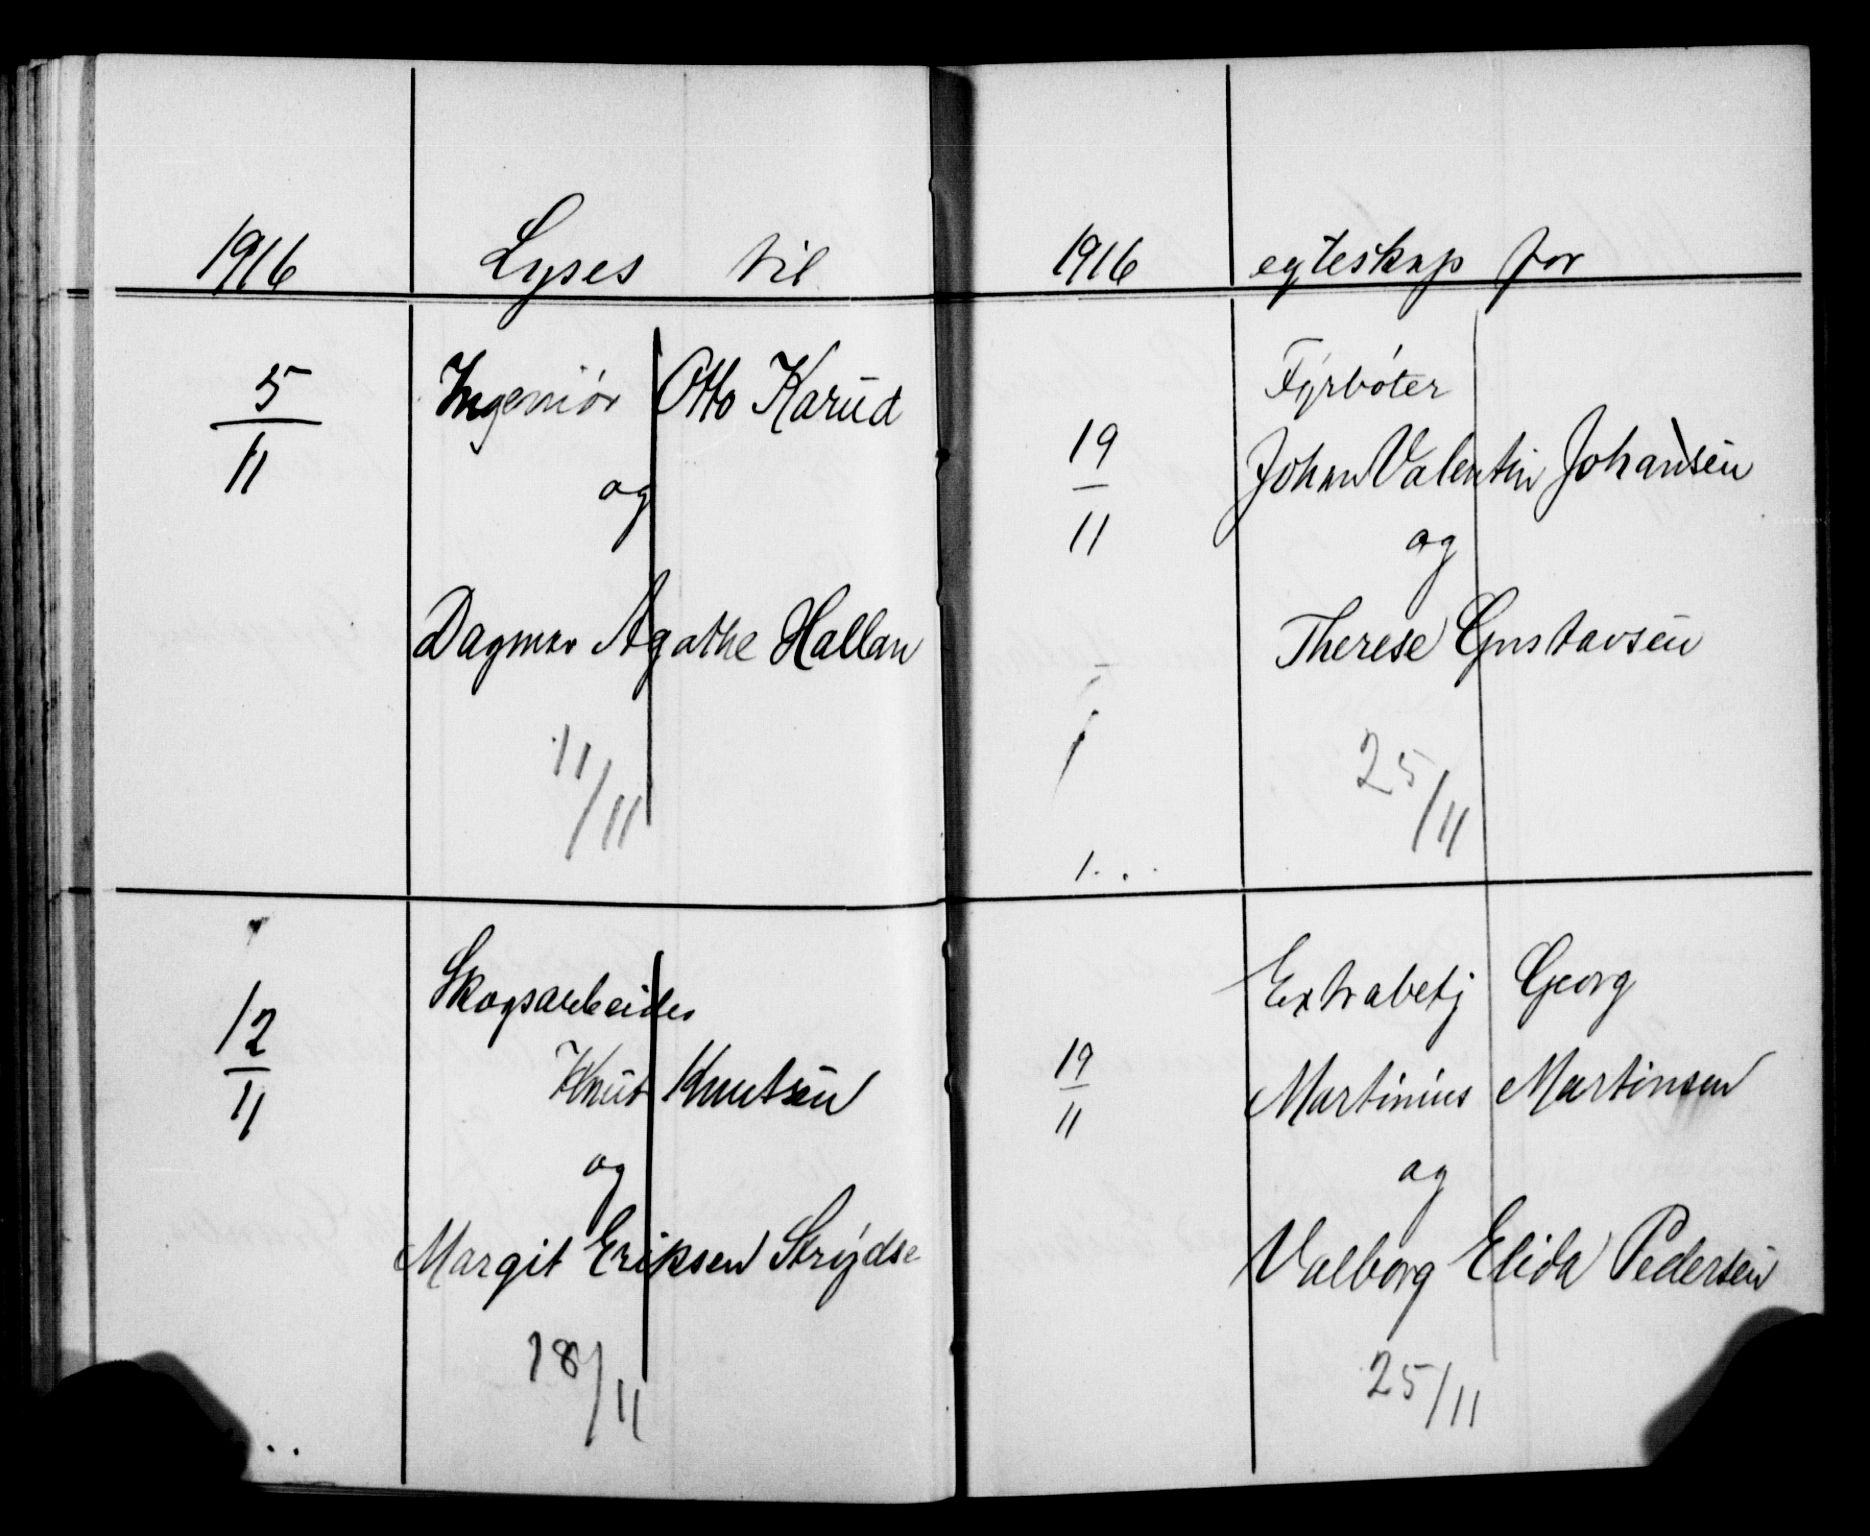 1916 Lyses til
5/11
Ingeniør Otto Karud
og
Dagmar Agathe Hallan
11/11
12/11
Skogsarbeider
Knut Knutsen
og
Margit Eriksen Strydse
18/11
1916 egteskap for
19/11
Fyrbøter
Johan Valentin Johansen
og
Therese Gustavsen
25/11
19/11
Extrabetj Georg
Martinius Martinsen
og
Valborg Elida Pedersen
25/11